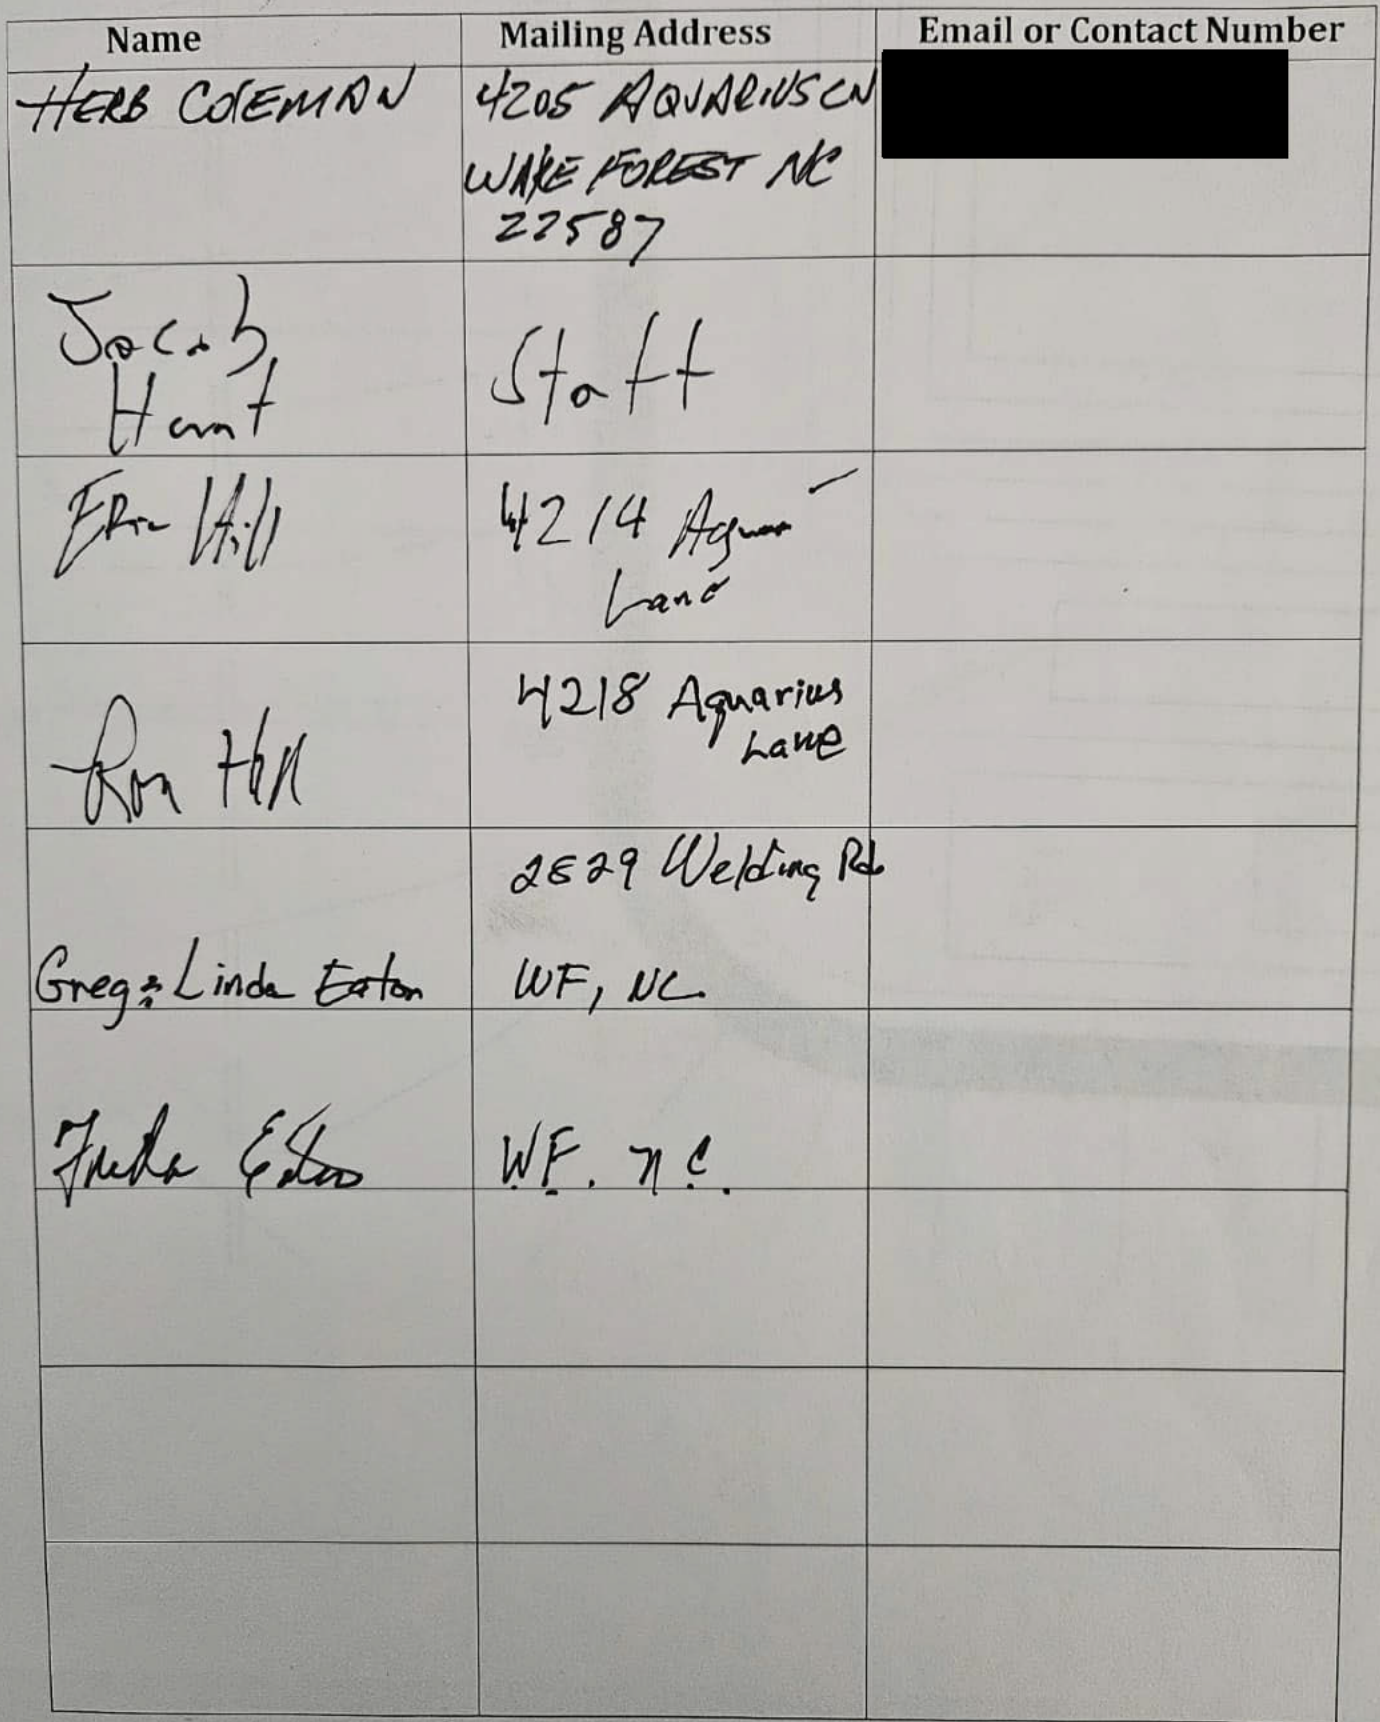 Name Mailing Address Email or Contact Number
HERB COLEMAN 4205 AQUARIUS LN
WAKE FOREST NC
27587
Jacob
Hunt Staff
Eric Hill 4214
Lane
Ron Hill 4218 Aquarius
Lane
2829 Welding Rd
Greg & Linda Eaton WF, NC
W.F. N.C.